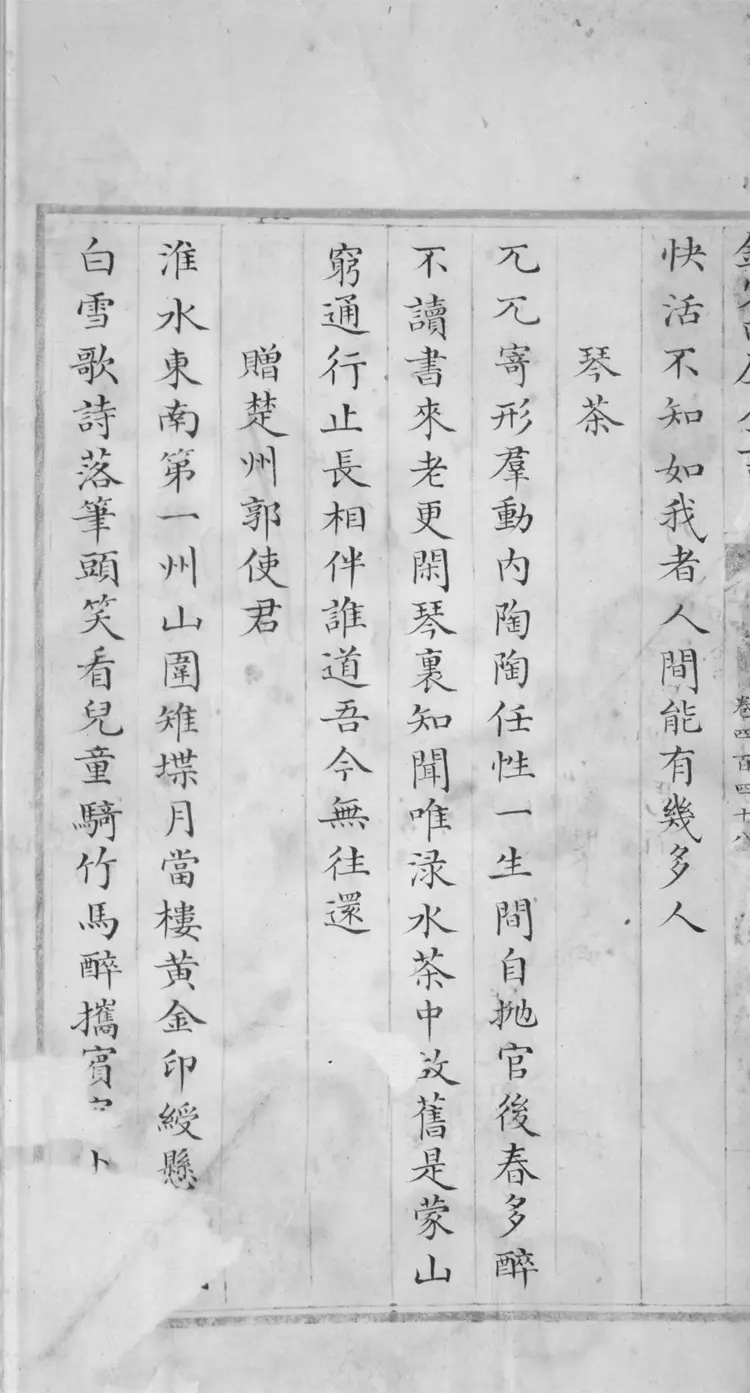 卷四百四十八
快活不知如我者人間能有幾多人
琴茶
兀兀寄形羣動內陶陶任性一生間自抛官後春多醉
不讀書來老更閑琴裏知聞唯渌水茶中故舊是蒙山
窮通行止長相伴誰道吾今無往還
贈楚州郭使君
淮水東南第一州山圍雉堞月當樓黃金印綬懸
白雪歌詩落筆頭笑看兒童騎竹馬醉攜賓